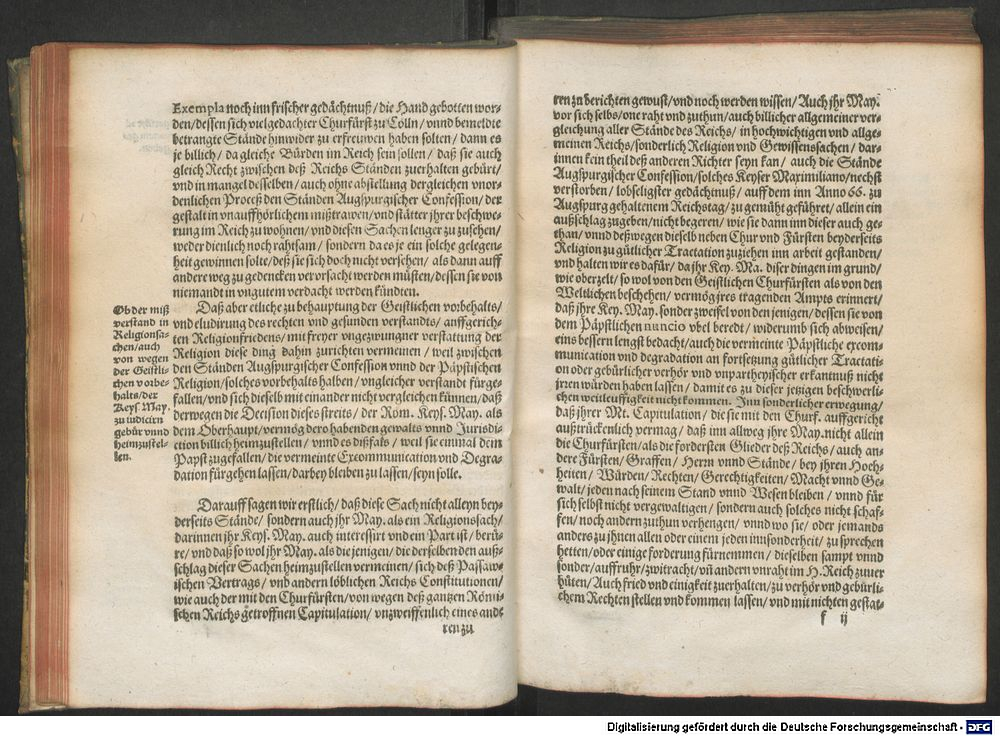 Exempla noch inn frischer gedächtnuß / die Hand gebotten wor-
den / dessen sich vielgedachter Churfürst zu Cölln / vnnd bemeldte
betrangte Stände hinwider zu erfreuwen haben solten / dann es
je billich / da gleiche Bürden im Reich sein sollen / daß sie auch
gleich Recht zwischen deß Reichs Ständen zuerhalten gebürt /
vnd in mangel desselben / auch ohne abstellung dergleichen vnor-
denlichen Proceß den Ständen Augspurgischer Confession / der
gestalt in vnauffhörlichem mißtrawen / vnd stätter jhrer beschwe-
rung im Reich zu wohnen / vnd diesen Sachen lenger zu zusehen /
weder dienlich noch rahtsam / sondern da es je ein solche gelegen-
heit gewinnen solte / deß sie sich doch nicht versehen / als dann auff
andere weg zu gedencken verorsacht werden müsten / dessen sie von
niemandt in vngutem verdacht werden kündten.
Ob der miß
verstand in
Religionsa-
chen / auch
von wegen
der Geistli-
chen vorbe-
halts / der
Keys. May.
zu iudicirn
gebür vnnd
heimzustel-
len.
Daß aber etliche zu behauptung der Geistlichen vorbehalts /
vnd eludirung des rechten vnd gesunden verstandts / auffgerich-
ten Religionfriedens / mit freyer vngezwungner verstattung der
Religion diese ding dahin zurichten vermeinen / weil zwischen
den Ständen Augspurgischer Confession vnnd der Päpstischen
Religion / solches vorbehalts halben / vngleicher verstand fürge-
fallen / vnd sich dieselb mit einander nicht vergleichen künnen / daß
derwegen die Decision dieses streits / der Röm. Keys. May. als
dem Oberhaupt / vermög dero habenden gewalts vnnd Jurisdi-
ction billich heimzustellen / vnnd es dißfals / weil sie einmal dem
Papst zugefallen / die vermeinte Excommunication vnd Degra-
dation fürgehen lassen / darbey bleiben zu lassen / seyn solle.
Darauff sagen wir erstlich / daß diese Sach nicht alleyn bey-
derseits Stände / sondern auch jhr May. als ein Religionsach /
darinnen jhr Keys. May. auch interessirt vnd ein Part ist / berü-
re / vnd daß so wol jhr May. als die jenigen / die derselben den auß-
schlag dieser Sachen heimzustellen vermeinen / sich deß Passaw-
ischen Vertrags / vnd andern löblichen Reichs Constitutionen /
wie auch der mit den Churfürsten / von wegen deß ganzen Römi-
schen Reichs getroffnen Capitulation / vnzweiffenlich eines ande
ren zu
ren zu berichten gewust / vnd noch werden wissen / Auch jhr May.
vor sich selbs / one raht vnd zuthun / auch billicher allgemeiner ver-
gleichung aller Stände des Reichs / in hochwichtigen vnd allge-
meinen Reichs / sonderlich Religion vnd Gewissenssachen / dar-
innen kein theil deß anderen Richter seyn kan / auch die Stände
Augspurgischer Confession / solches Keyser Maximiliano / nechst
verstorben / lobseligster gedächtnuß / auff dem inn Anno 66. zu
Augspurg gehaltenem Reichstag / zu gemüht geführet / allein ein
außschlag zugeben / nicht begeren / wie sie dann inn dieser auch ge-
than / vnnd deßwegen dieselb neben Chur vnd Fürsten beyderseits
Religion zu gütlicher Tractation zuziehen inn arbeit gestanden /
vnd halten wir es dafür / da jhr Key. Ma. diser dingen im grund /
wie oberzelt / so wol von den Geistlichen Churfürsten als von den
Weltlichen beschehen / vermög jres tragenden Ampts erinnert /
daß jhre Key. May. sonder zweifel von den jenigen / dessen sie von
dem Päpstlichen nuncio vbel beredt / widerumb sich abweisen /
eins bessern lengst bedacht / auch die vermeinte Päpstliche excom-
munication vnd degradation an fortsetzung gütlicher Tractati-
on oder gebürlicher verhör vnd vnpartheyischer erkantnuß nicht
jrren würden haben lassen / damit es zu dieser jetzigen beschwerli-
chen weitleuffigkeit nicht kommen. Inn sonderlicher erwegung /
daß jhrer Mt. Capitulation / die sie mit den Churf. auffgericht
außtrückenlich vermag / daß inn allweg jhre May. nicht allein
die Churfürsten / als die fordersten Glieder deß Reichs / auch an-
dere Fürsten / Graffen / Herrn vnnd Stände / bey jhren Hoch-
heiten / Würden / Rechten / Gerechtigkeiten / Macht vnnd Ge-
walt / jeden nach seinem Stand vnnd Wesen bleiben / vnnd für
sich selbst nicht vergewaltigen / sondern auch solches nicht schaf-
fen / noch andern zuthun verhengen / vnnd wo sie / oder jemands
anders zu jhnen allen oder einem jeden innsonderheit / zu sprechen
hetten / oder einige forderung fürnemmen / dieselben sampt vnnd
sonder / auffruhr / zwitracht / vñ andern vnraht im H. Reich zuuer
hüten / Auch fried vnd einigkeit zuerhalten / zu verhör vnd gebürli-
chem Rechten stellen vnd kommen lassen / vnd mit nichten gestat-
f ij
Digitalisierung gefördert durch die Deutsche Forschungsgemeinschaft - DFG